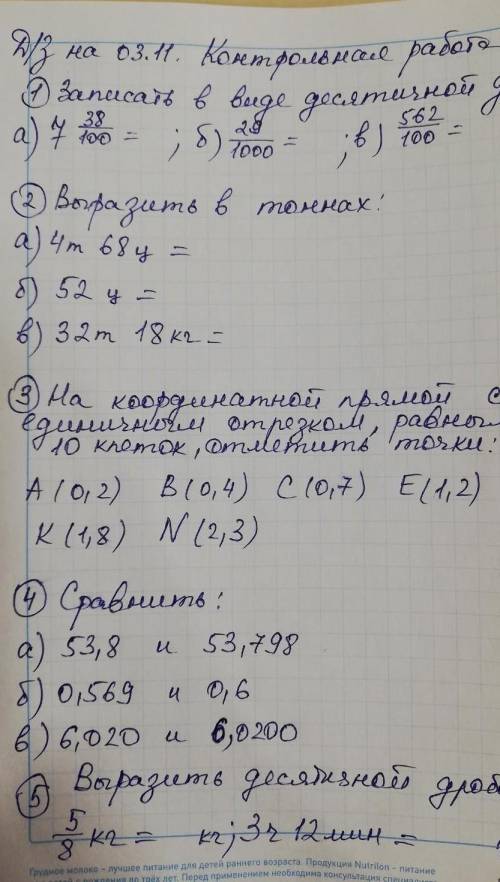 Д/З на 03.11. Контрольная работа
① Записать в виде десятичной
а) 7 38/100 = ; б) 29/1000 = ; в) 562/100 =
② Выразить в тоннах:
а) 4т 68ц =
б) 52 ц =
в) 32т 18кг =
③ На координатной прямой с
единичным отрезком, равным
10 клеток, отметить точки:
А(0,2) В(0,4) С(0,7) Е(1,2)
К(1,8) N(2,3)
④ Сравнить:
а) 53,8 и 53,798
б) 0,569 и 0,6
в) 6,020 и 6,0200
⑤ Выразить десятичной дроб
5/8 кг = кг; 3ч 12мин =
Грудное молоко – лучшее питание для детей раннего возраста. Продукция Nutrilon – питание
с рождения до трёх лет. Перед применением необходима консультация